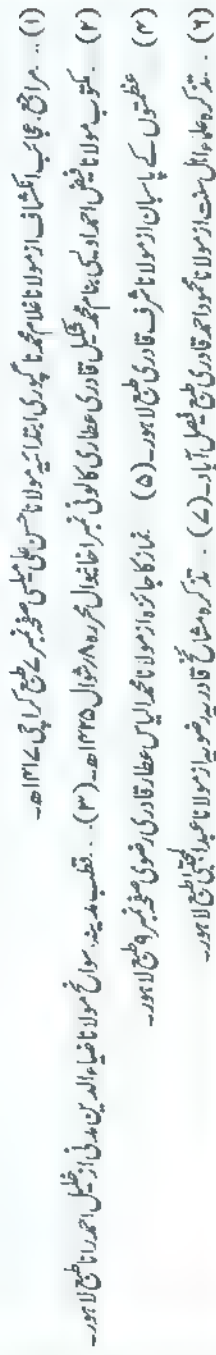 (۱)... مراجع۔ عجائب انکشاف از مولانا غلام محمد ناگپوری ابتدائیہ مولانا حسن علی میلسی صفحہ نمبر ۷ طبع کراچی ۱۴۱۷ھ۔
(۲) ۔مکتوب مولانا فیض احمد اویسی بنام محمد شکیل قادری عطاری کالونی نمبر ا خانیوال محررہ ۸ شوال ۱۴۲۵ھ۔ (۳)... قطب مدینہ۔ سوانح مولانا ضیاء الدین مدنی از خلیل احمد رانا طبع لاہور۔
(۴) عظمتوں کے پاسبان از مولانا شرف قادری طبع لاہور۔ (۵) نماز کا جائزہ از مولانا محمد الیاس عطار قادری رضوی صفحہ نمبر ۹ طبع لاہور۔
(۶) ۔ تذکرہ علماء اہل سنت از مولانا محمود احمد قادری طبع فیصل آباد۔ (۷) ۔ تذکرہ مشائخ قادریہ رضویہ از مولانا عبدالمجتبیٰ طبع لاہور۔